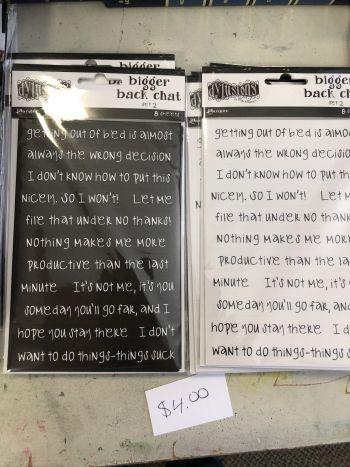 DYLUSIONS
bigger
back chat
set 2
8 sheets
getting out of bed is almost
always the wrong decision
I don't know how to put this
nicely. So I won't! Let me
file that under no thanks!
Nothing makes me more
productive than the last
minute It's not me, it's you
someday you'll go far, and I
hope you stay there I don't
want to do things-things suck
DYLUSIONS
bigger
back ch
set 2
8 sheets
getting out of bed is alm
always the wrong decisio
I don't know how to put th
nicely. So I won't! Let
file that under no thank
Nothing makes me mo
productive than the la
minute It's not me, it's
someday you'll go far, and
hope you stay there I d
want to do things-things s
$4.00